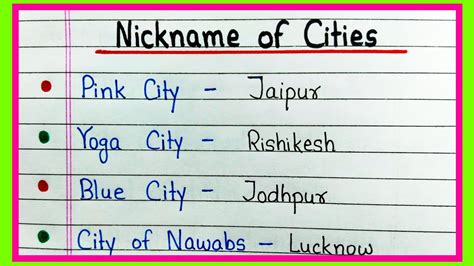 Nickname of Cities
Pink City - Jaipur
Yoga City - Rishikesh
Blue City - Jodhpur
City of Nawabs - Lucknow